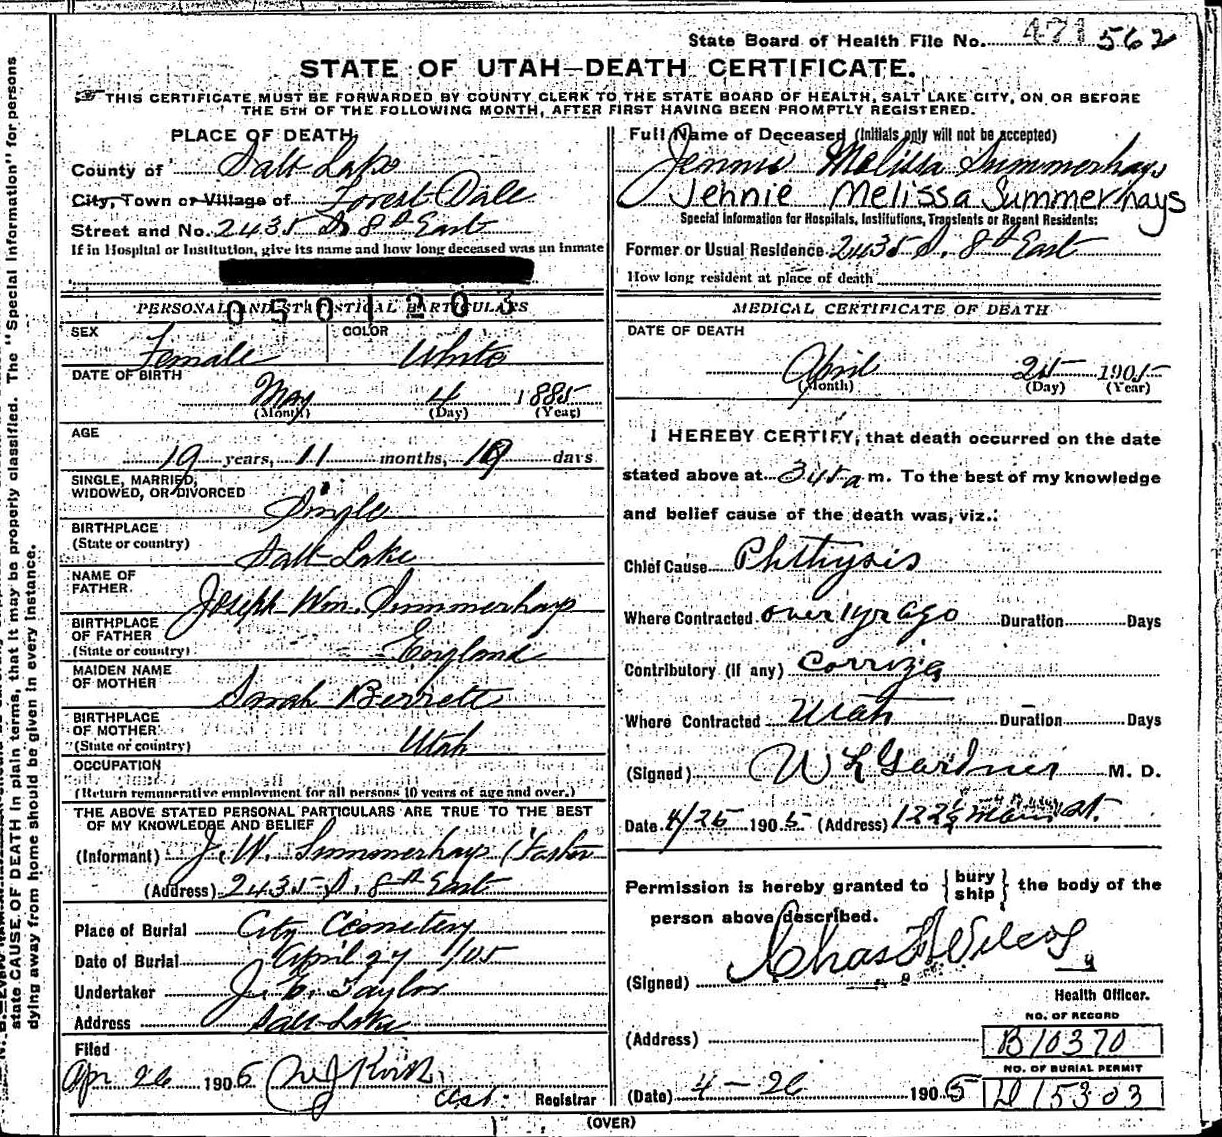 State Board of Health File No. 471 562
STATE OF UTAH—DEATH CERTIFICATE.
THIS CERTIFICATE MUST BE FORWARDED BY COUNTY CLERK TO THE STATE BOARD OF HEALTH, SALT LAKE CITY, ON OR BEFORE
THE 5TH OF THE FOLLOWING MONTH, AFTER FIRST HAVING BEEN PROMPTLY REGISTERED.
PLACE OF DEATH
County of Salt Lake
City, Town or Village of Forest Dale
Street and No. 2435 S. 8th East
If in Hospital or Institution, give its name and how long deceased was an inmate
0501203
PERSONAL AND STATISTICAL PARTICULARS
SEX Female COLOR White
DATE OF BIRTH
May 4 1885
(Month) (Day) (Year)
AGE
19 years, 11 months, 19 days
SINGLE, MARRIED,
WIDOWED, OR DIVORCED
Single
BIRTHPLACE
(State or country)
Salt Lake
NAME OF
FATHER
Joseph Wm. Summerhays
BIRTHPLACE
OF FATHER
(State or country)
England
MAIDEN NAME
OF MOTHER
Sarah Berrett
BIRTHPLACE
OF MOTHER
(State or country)
Utah
OCCUPATION
(Return remunerative employment for all persons 10 years of age and over.)
THE ABOVE STATED PERSONAL PARTICULARS ARE TRUE TO THE BEST
OF MY KNOWLEDGE AND BELIEF
(Informant) J. W. Summerhays (Father
(Address) 2435 S. 8th East
Place of Burial City Cemetery
Date of Burial April 27 1/05
Undertaker J. E. Taylor
Address Salt Lake
Filed
Apr 26 1905 Ast. Registrar
Full Name of Deceased (Initials only will not be accepted)
Jennie Melissa Summerhays
Jennie Melissa Summerhays
Special Information for Hospitals, Institutions, Transients or Recent Residents:
Former or Usual Residence 2435 S. 8th East
How long resident at place of death
MEDICAL CERTIFICATE OF DEATH
DATE OF DEATH
April 25 1905
(Month) (Day) (Year)
I HEREBY CERTIFY, that death occurred on the date
stated above at 345 a m. To the best of my knowledge
and belief cause of the death was, viz.:
Chief Cause Phthysis
Where Contracted over 1 yr ago Duration Days
Contributory (if any) Corriza
Where Contracted Utah Duration Days
(Signed) W L Gardner M. D.
Date 4/25 1905 (Address) 122½ Main St.
Permission is hereby granted to { bury ship } the body of the
person above described.
(Signed) Chas
Health Officer.
(Address)
NO. OF RECORD
B10370
NO. OF BURIAL PERMIT
D 15303
(Date) 4 - 26 1905
(OVER)
state CAUSE OF DEATH in plain terms, that it may be properly classified. The "Special Information" for persons
dying away from home should be given in every instance.